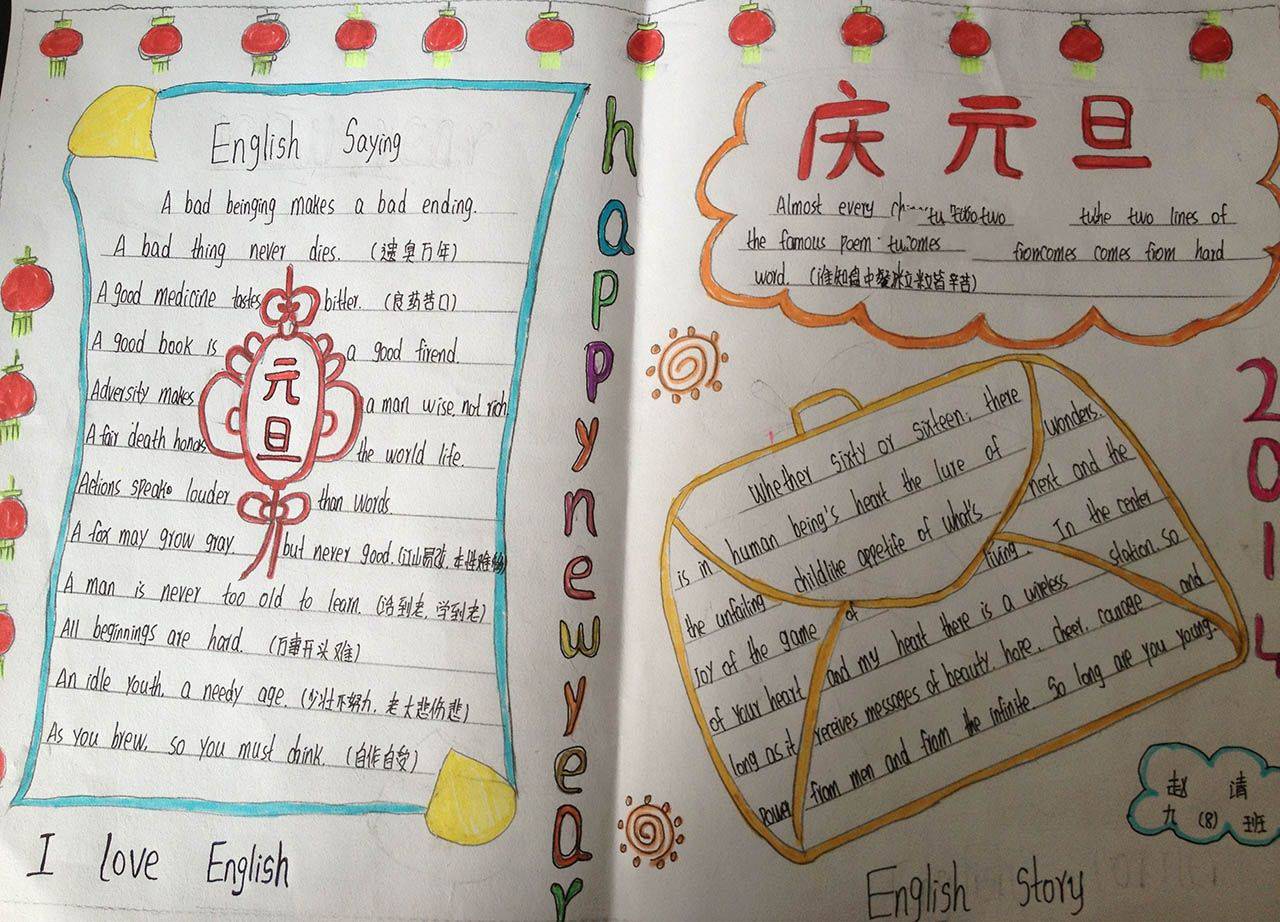 English Saying
A bad beinging makes a bad ending.
A bad thing never dies. (遗臭万年)
A good medicine tastes bitter. (良药苦口)
A good book is a good firend.
Adversity makes a man wise, not rich
A fair death honors the world life.
Actions speake louder than words
A fox may grow gray, but never good. (江山易改, 本性难移)
A man is never too old to learn. (活到老, 学到老)
All beginnings are hard. (万事开头难)
An idle youth, a needy age. (少壮不努力, 老大悲伤悲)
As you brew, so you must drink. (自作自受)
元旦
I love English
happy new year
庆元旦
Almost every tu two tuhe two lines of
the famous poem: fromcomes comes from hard
word. (谁知盘中餐 皆辛苦)
Whether sixty or sixteen, there
is in human being's heart the lure of wonders.
the unfailing childlike appetite of what's next and the
Joy of the game of living. In the center
of your heart and my heart there is a wireless station. So
long as it receives messages of beauty, hope, cheer, courage and
power from men and from the infinite. So long are you young.
2014
赵清
九(8)班
English Story